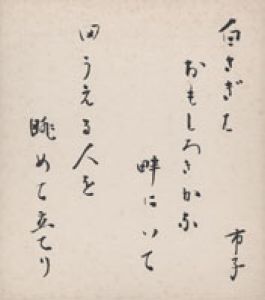 白さぎは
おもしろきかな
畔にいて
田うえる人を
眺めて立てり
市子